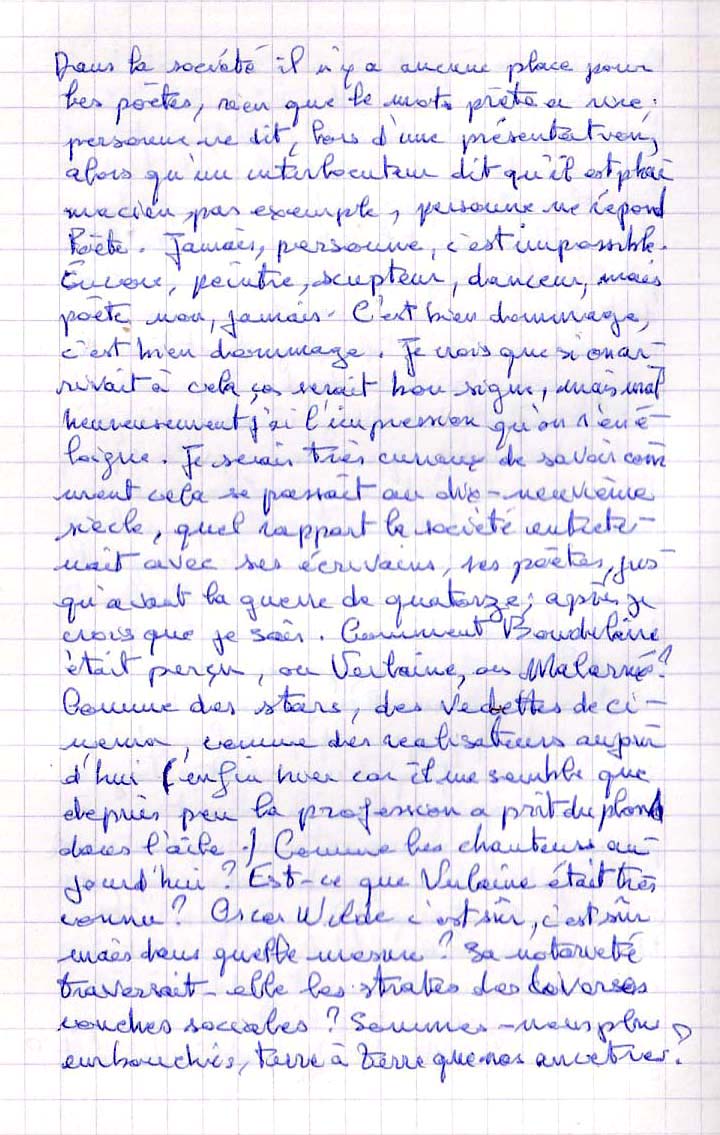 Dans la société il n'y a aucune place pour
les poètes, rien que le mot prête a rire ;
personne ne dit, lors d'une présentation,
alors qu'un interlocuteur dit qu'il est phar
macien, par exemple, personne ne répond
Poète. Jamais, personne, c'est impossible.
Encore, peintre, scupteur, danceur, mais
poète non, jamais. C'est bien dommage,
c'est bien dommage. Je crois que si on ar-
rivait à cela, ça serait bon signe, mais mal
heureusement j'ai l'impression qu'on s'en é-
loigne. Je serais très curieux de savoir com
ment cela se passait au dix-neuvième
siècle, quel rapport la société entrete-
nait avec ses écrivains, ses poètes, jus-
qu'avant la guerre de quatorze ; après je
crois que je sais. Comment Baudelaire
était perçu, ou Verlaine, ou Malarmé ?
Comme des stars, des vedettes de ci-
néma, comme des réalisateurs aujour
d'hui (enfin hier car il me semble que
depuis peu la profession a prit du plomb
dans l'aile.) Comme les chanteurs au-
jourd'hui ? Est-ce que Verlaine était très
connu ? Oscar Wilde c'est sûr, c'est sûr
mais dans quelle mesure ? Sa notorieté
traversait-elle les strates des diverses
couches sociales ? Sommes-nous plus
embouchés, terre à terre que nos ancetres ?